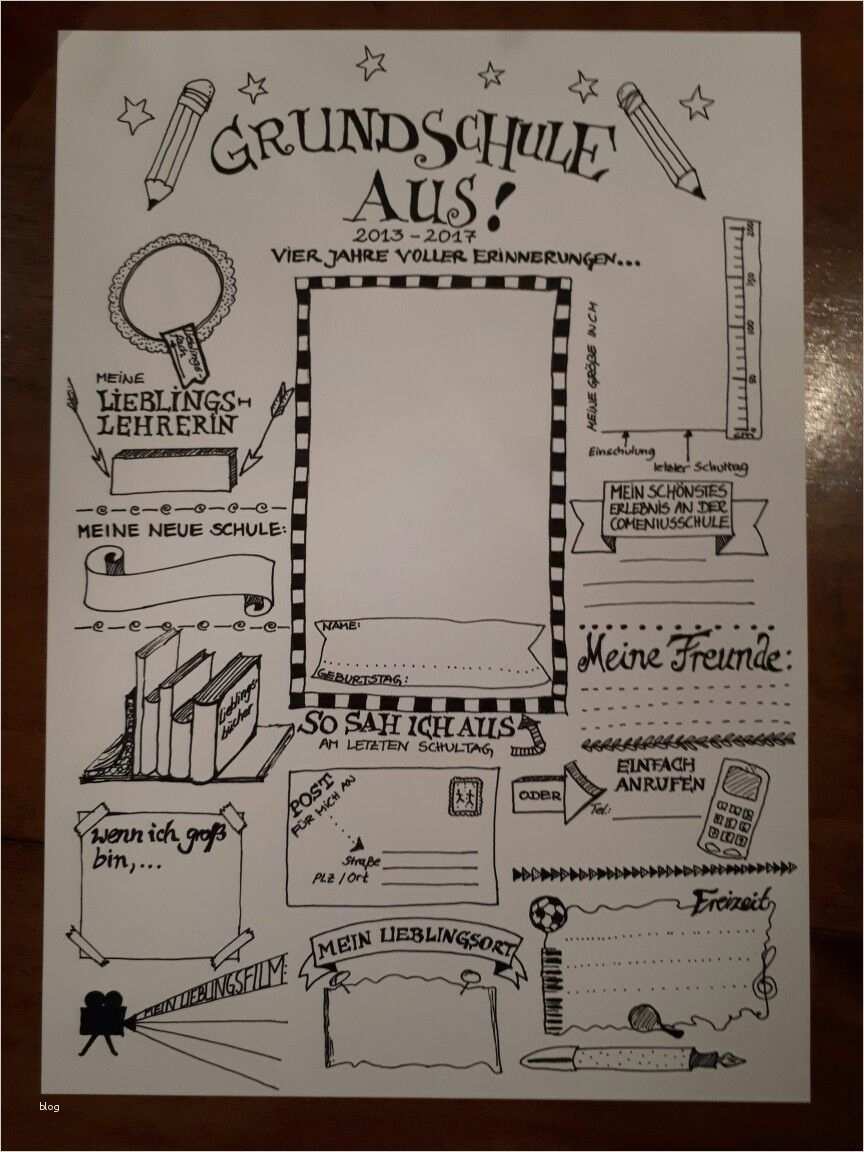 GRUNDSCHULE
AUS!
2013-2017
VIER JAHRE VOLLER ERINNERUNGEN...
MEINE
LIEBLINGS-
LEHRERIN
MEINE NEUE SCHULE:
Lieblings-
bücher
wenn ich groß
bin,...
MEIN LIEBLINGSFILM:
NAME:
GEBURTSTAG:
SO SAH ICH AUS
AM LETZTEN SCHULTAG
POST
FÜR MICH AN
Straße
PLZ/Ort
MEIN LIEBLINGSORT
MEINE GRÖßE IN CM
200
150
100
50
0
Einschulung
letzter Schultag
MEIN SCHÖNSTES
ERLEBNIS AN DER
COMENIUSSCHULE
Meine Freunde:
ODER
EINFACH
ANRUFEN
Tel.:
Freizeit
blog